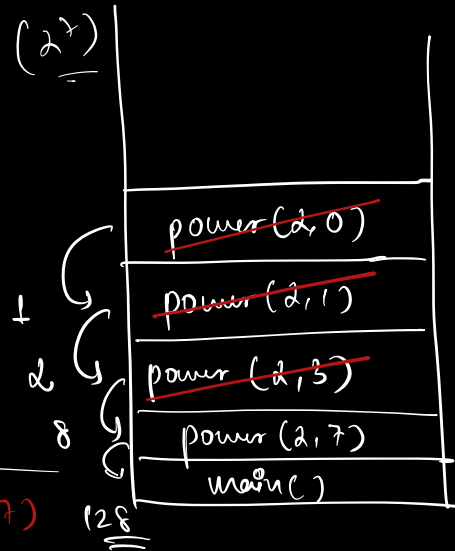 (2⁷)
power(2,0)
1
power(2,1)
2
power(2,3)
8
power(2,7)
main()
7)
128